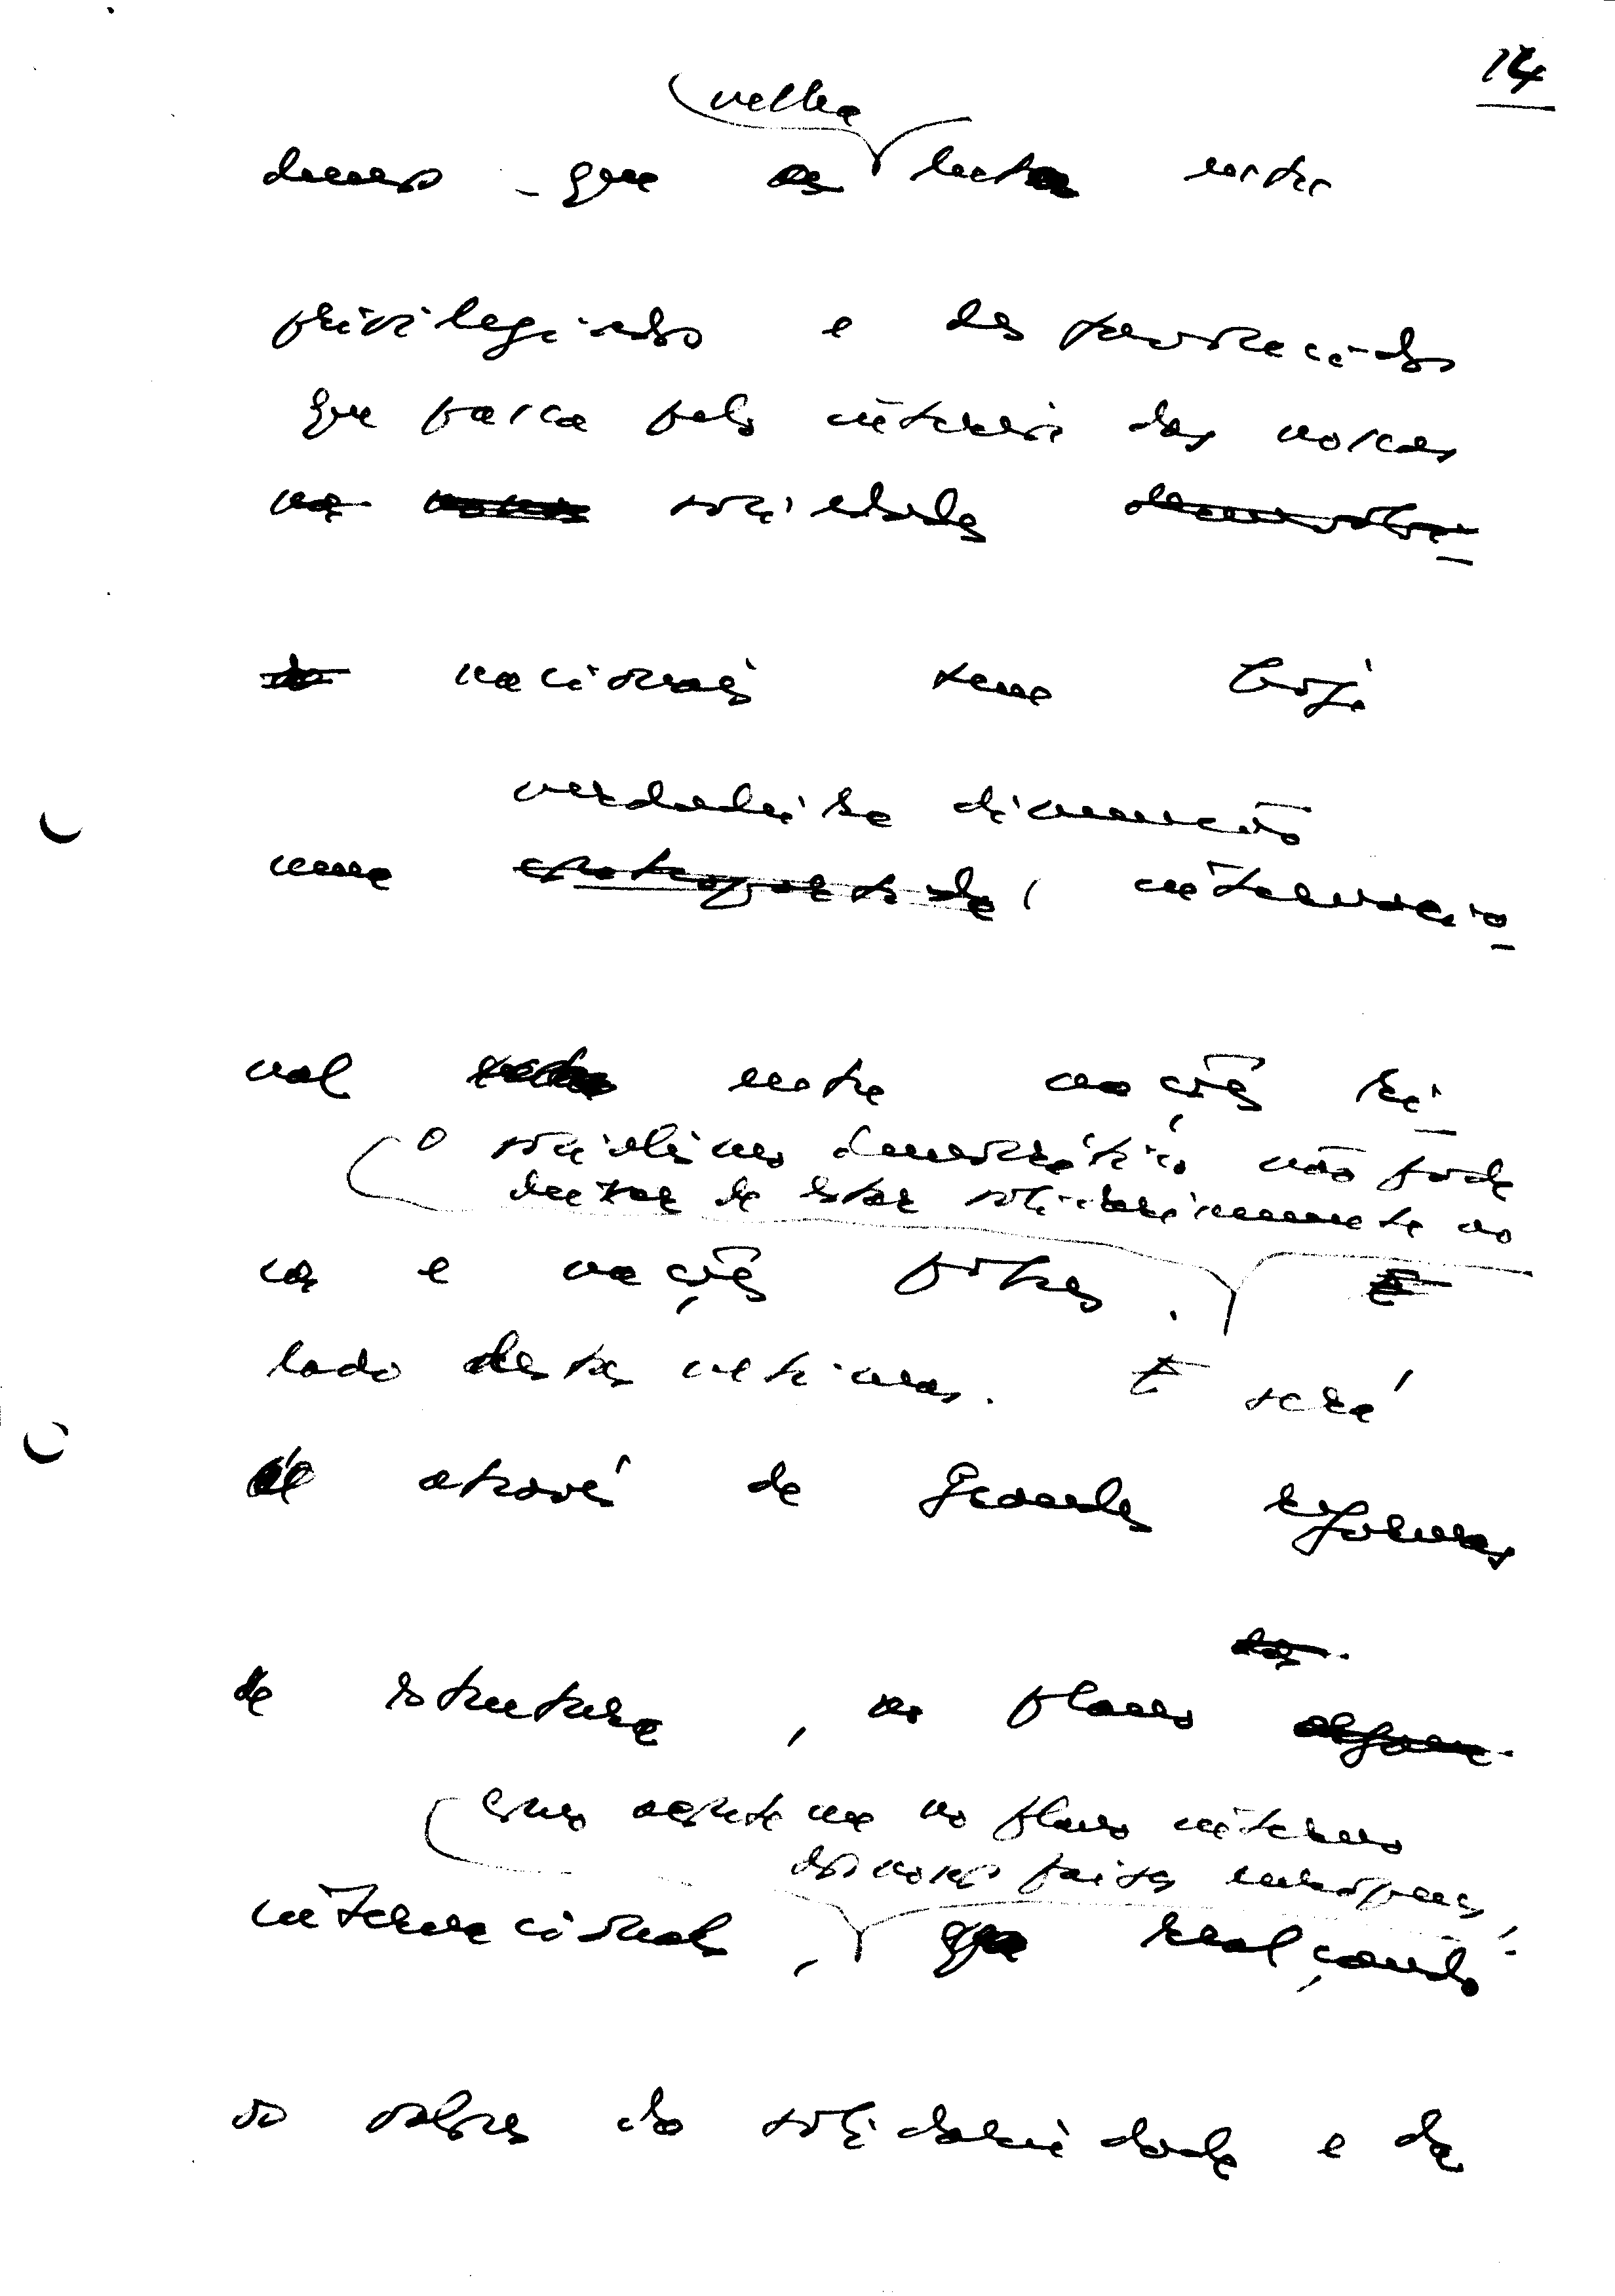 14
velha
damos - que a luta entre
privilegiados e desfavorecidos
que passa pelo interior das nossas
na sociedades
nacionais tem hoje
verdadeira dimensão
uma internacio
nal entre nações ri
O socialismo democrático não pode
deixar de estar solidariamente ao
cas e nações pobres.
lado destas últimas. E será
através de grandes reformas
de estrutura, no plano
como aliás no plano interno
dos nossos países europeus,
internacional, realçando
os valores da solidariedade e da